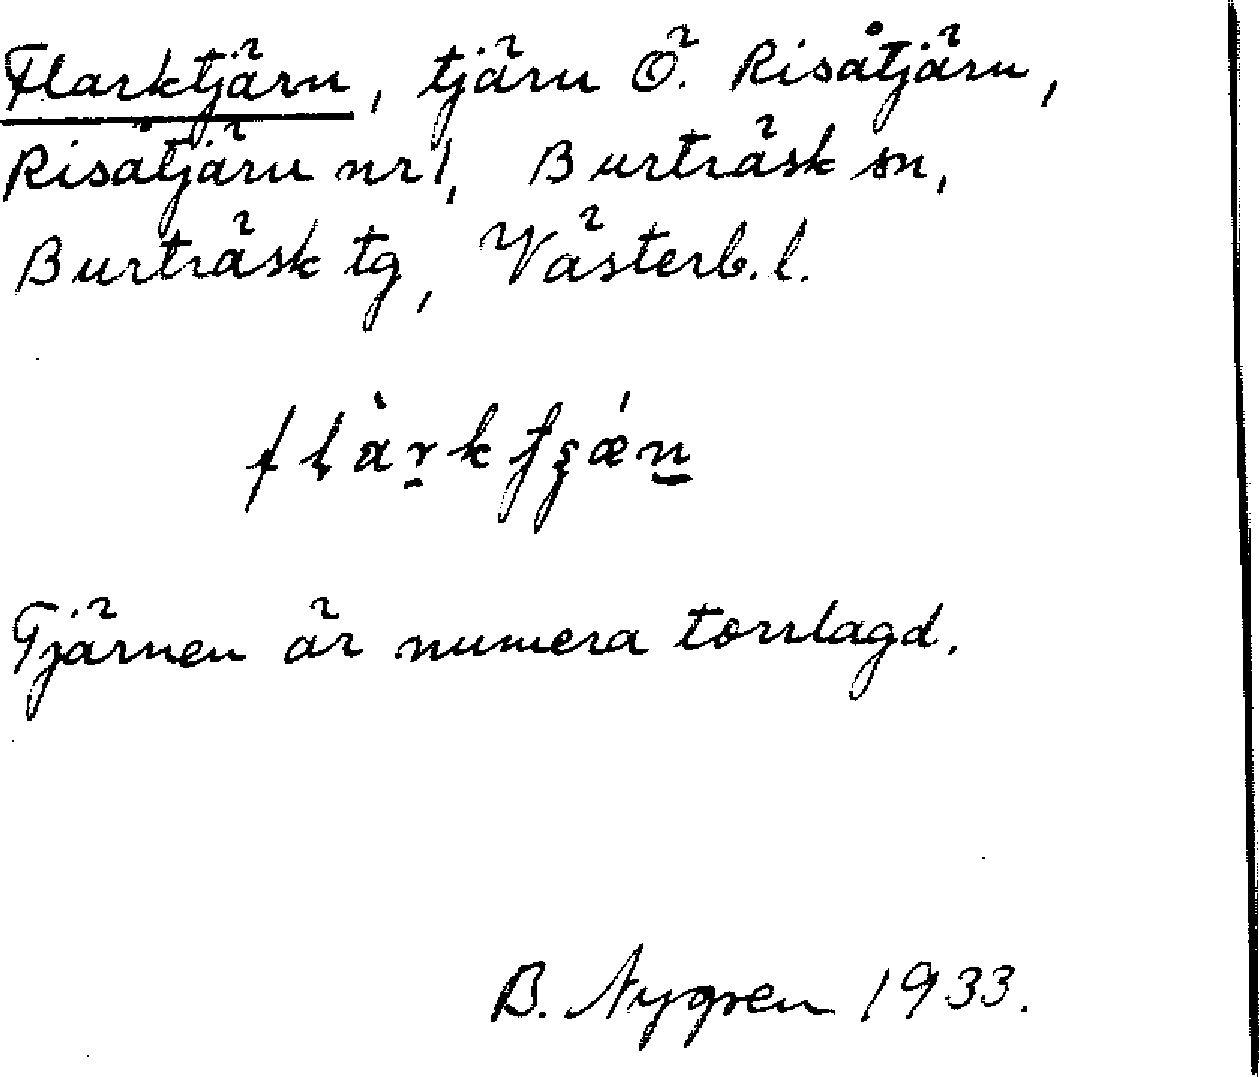 Flarktjärn, tjärn Ö. Risåtjärn,
Risåtjärn nr 1, Burträsk sn,
Burträsk tg, Västerb. l.
Tjärnen är numera torrlagd.
B. Nygren 1933.